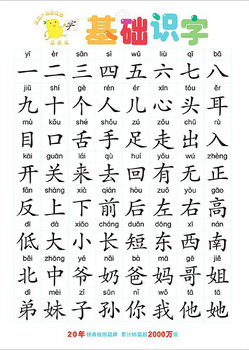 基础识字
yī èr sān sì wǔ liù qī bā
一二三四五六七八
jiǔ shí gè rén ér xīn tóu ěr
九十个人儿心头耳
mù kǒu shé shǒu zú zǒu chū rù
目口舌手足走出入
kāi guān lái qù huí yǒu wú zhèng
开关来去回有无正
fǎn shàng xià qián hòu zuǒ yòu gāo
反上下前后左右高
dī dà xiǎo cháng duǎn dōng xī nán
低大小长短东西南
běi zhōng yé nǎi bà mā gē jiě
北中爷奶爸妈哥姐
dì mèi zǐ sūn nǐ wǒ tā tā
弟妹子孙你我他她